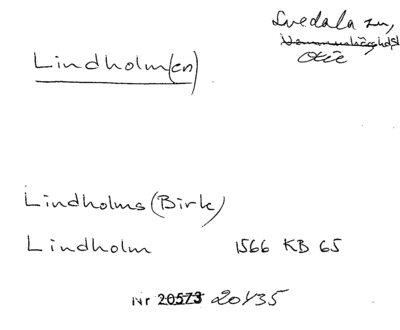 Svedala sn,
Oxie
Lindholm(en)
Lindholms (Birk)
Lindholm 1566 KB 65
Nr 20573 20435